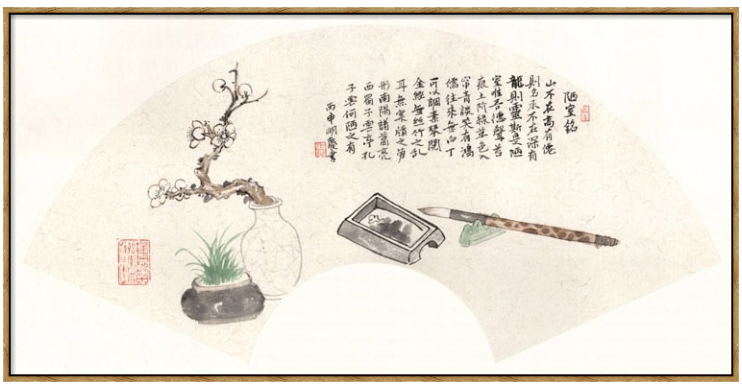 陋室銘
山不在高有僊
則名水不在深有
龍則靈斯是陋
室惟吾德馨苔
痕上階綠草色入
簾青談笑有鴻
儒往來無白丁
可以調素琴閱
金經無絲竹之亂
耳無案牘之勞
形南陽諸葛亮
西蜀子雲亭孔
子雲何陋之有
丙申明慶書